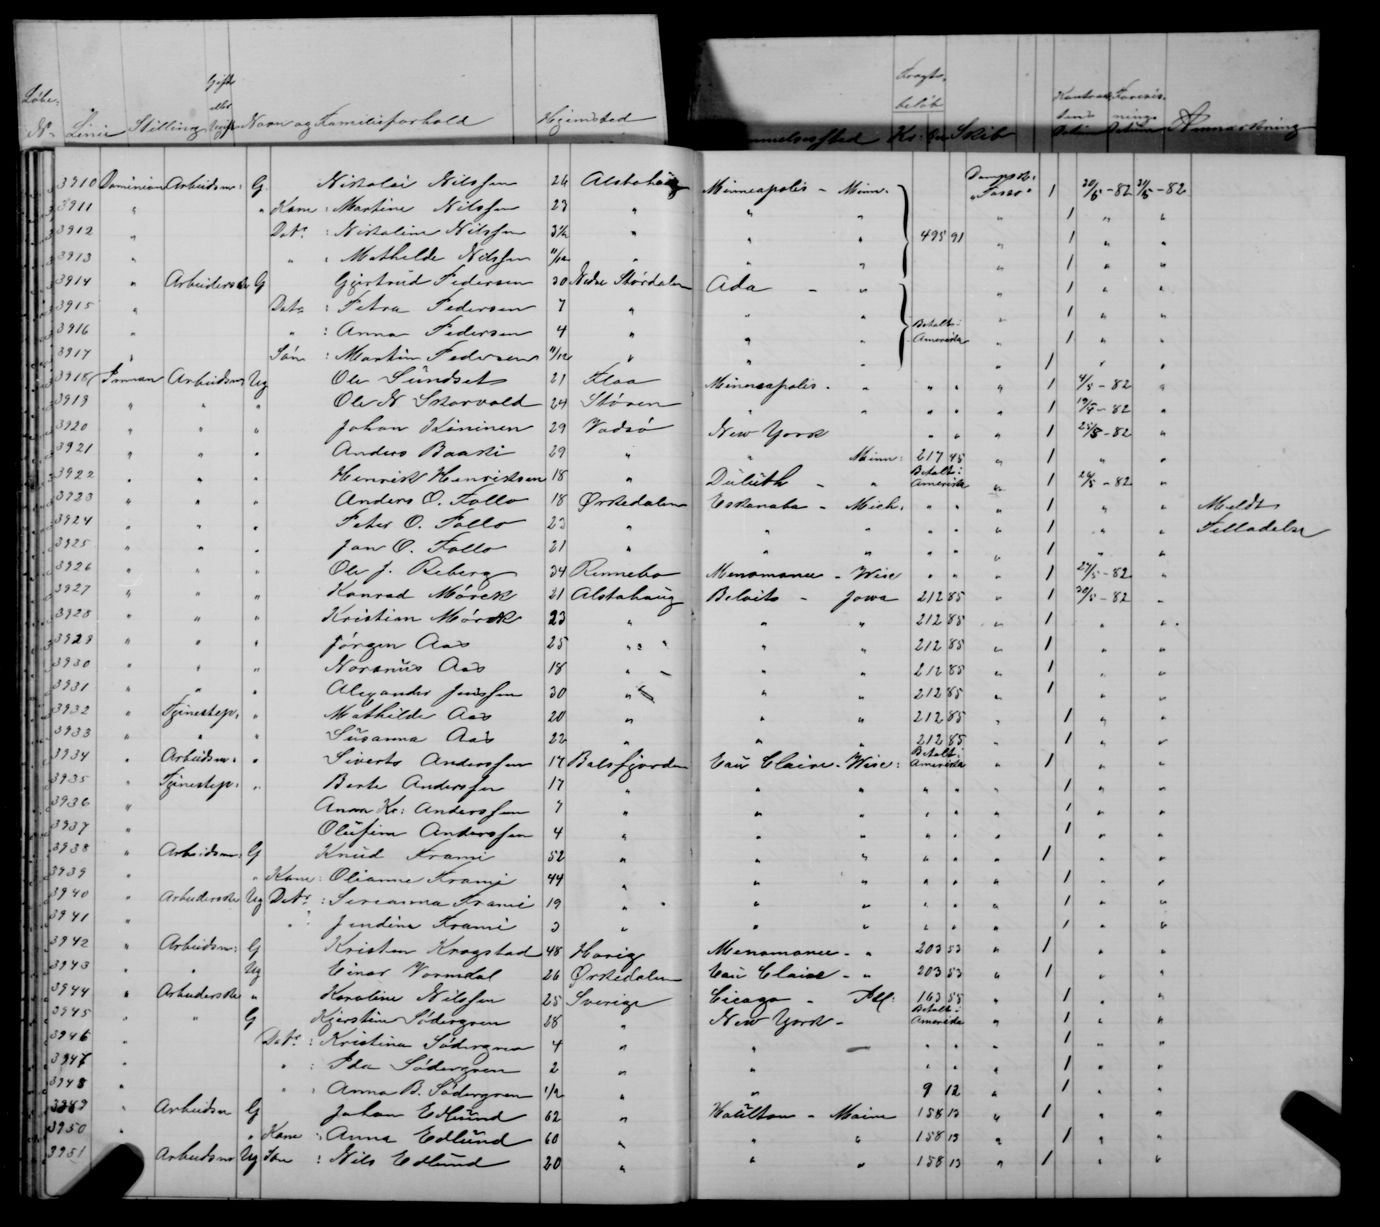 Løbe- Gift eller Fragt- Kontrak- Forevis-
No Linie Stilling Ugift Navn og Familieforhold Hjemsted beløb Kr: Øre Skib tens nings Anmærkning
3910 Dominion Arbeidsm: G Nikolai Nilssen 26 Alstahaug Minneapolis - Minn: Dampsk: "Tasso" 1 20/5-82 31/5-82
3911 " " Kone: Martine Nilssen 23 " " " 1 " "
3912 " Datr: Nikoline Nilssen 3½ " " " 495 91 " 1 " "
3913 " " : Mathilde Nilssen 11/12 " " " " 1 " "
3914 " Arbeiderske G Gjertrud Pedersen 30 Nedre Størdalen Ada - " " 1 " "
3915 " Datr: Petra Pedersen 7 " " " " 1 " "
3916 " " : Anna Pedersen 4 " " " Betalt: Amerika " 1 " "
3917 " Søn: Martin Pedersen 11/12 " " " " 1 " "
3918 Inman Arbeidsm: Ug Ole Sundset 21 Flaa Minneapolis - " " " " 1 4/5-82 "
3919 " " " Ole N. Skorvold 24 Støren " " " " " 1 19/5-82 "
3920 " " " Johan 29 Vadsø New York " " " 1 25/5-82 "
3921 " " " Anders Baaski 29 " " Minn: 217 45 " 1 " "
3922 " " " Henrik Henriksen 18 " Duluth - " Betalt: Amerika " 1 26/5-82 "
3923 " " " Anders O. Follo 18 Ørkedalen Eskanaba - Mich. " " " 1 " " Meldt
3924 " " " Peter O. Follo 23 " " " " " " 1 " " Filladelse
3925 " " " Jon O. Follo 21 " " " " " " 1 " "
3926 " " " Ole J. Reberg 34 Rennebo Menomonee - Wisc " " " 1 27/5-82 "
3927 " " " Konrad Mørck 21 Alstahaug Beloits - Iowa 212 85 " 1 30/5-82 "
3928 " " " Kristian Mørck 23 " " " 212 85 " 1 " "
3929 " " " Jørgen Aas 25 " " " 212 85 " 1 " "
3930 " " " Noranus Aas 18 " " " 212 85 " 1 " "
3931 " " " Alexander Jenssen 30 " " " 212 85 " 1 " "
3932 " Tjenestep: " Mathilde Aas 20 " " " 212 85 " 1 " "
3933 " " " Susanna Aas 22 " " " 212 85 " 1 " "
3934 " Arbeidsm: " Siverts Anderssen 17 Balsfjorden Eau Claire - Wisc: Betalt: Amerika " 1 " "
3935 " Tjenestep: " Berte Anderssen 17 " " " " " " 1 " "
3936 " Anna Kr: Anderssen 7 " " " " " " 1 " "
3937 " Olufine Anderssen 4 " " " " " " 1 " "
3938 " Arbeidsm: G Knud Frami 52 " " " " " " 1 " "
3939 " " Kone: Olianne Frami 44 " " " " " " 1 " "
3940 " Arbeiderske Ug Datr: Serianna Frami 19 " " " " " " 1 " "
3941 " " : Jendine Frami 3 " " " " " " 1 " "
3942 " Arbeidsm: G Kristen Krogstad 48 Horig Menomonee - " 203 53 " 1 " "
3943 " " Ug Einar Vormdal 26 Ørkedalen Eau Claire - " 203 53 " 1 " "
3944 " Arbeiderske " Karoline Nilssen 25 Sverige Cicago - Ill: 163 55 " 1 " "
3945 " " G Kjerstine Södergren 28 " New York - Betalt: Amerika " 1 " "
3946 " Datr: Kristina Södergren 4 " " " " " 1 " "
3947 " " : Ida Södergren 2 " " " " " 1 " "
3948 " " : Anna B. Södergren 1/2 " " 9 12 " 1 " "
3949 " Arbeidsm G Johan Edlund 62 " Houlton - Maine 158 13 " 1 " "
3950 " " Kone: Anna Edlund 60 " " " 158 13 " 1 " "
3951 Arbeidsm Ug Søn: Nils Edlund 20 " " " 158 13 " 1 " "